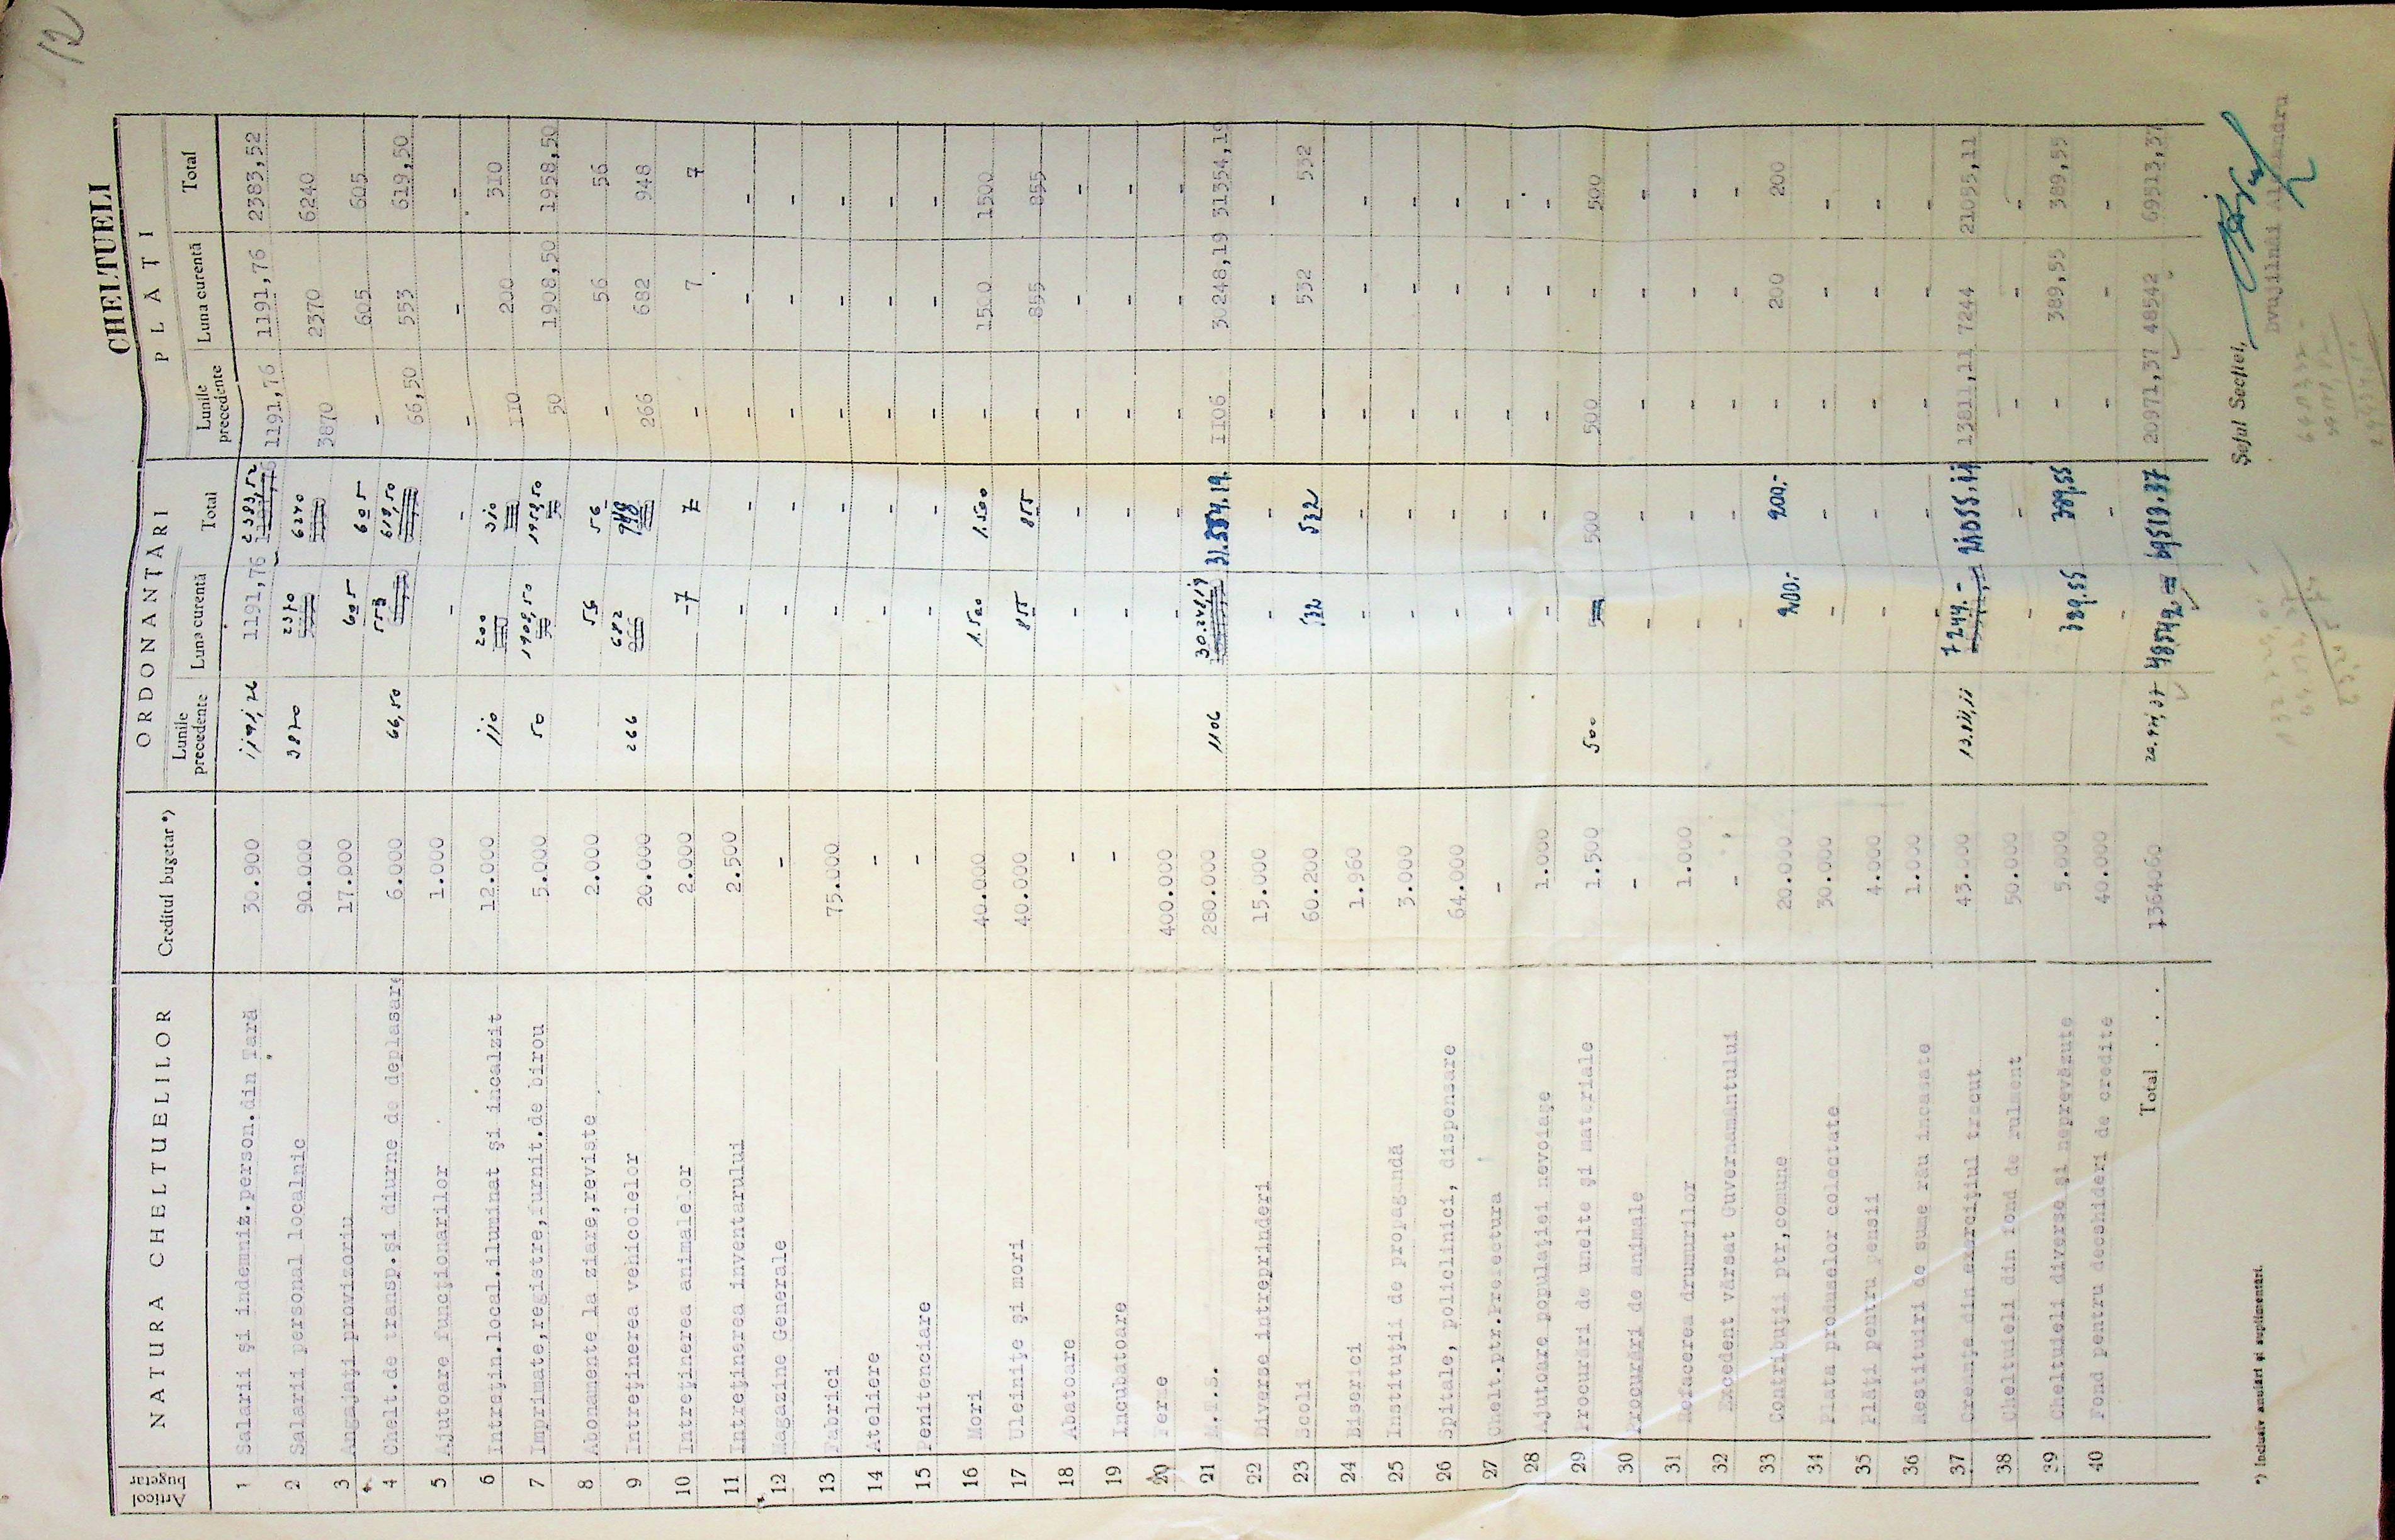 12
CHELTUELI
Articol bugetar | NATURA CHELTUELILOR | Creditul bugetar *) | ORDONANȚĂRI | PLĂȚI
Lunile precedente | Luna curentă | Total | Lunile precedente | Luna curentă | Total
1 Salarii şi indemniz.person.din Ţară 30.900 1191,76 1191,76 2383,52 1191,76 1191,76 2383,52
2 Salarii personal localnic 90.000 3870 2370 6240 3870 2370 6240
3 Angajaţi provizoriu 17.000 605 605 - 605 605
4 Chelt.de transp.şi diurne de deplasare 6.000 66,50 553 619,50 66,50 553 619,50
5 Ajutoare funcţionarilor 1.000 - - - - -
6 Intreţin.local.iluminat şi incalzit 12.000 110 200 310 110 200 310
7 Imprimate,registre,furnit.de birou 5.000 50 1908,50 1958,50 50 1908,50 1958,50
8 Abonamente la ziare,reviste 2.000 56 56 - 56 56
9 Intreţinerea vehicolelor 20.000 266 682 948 266 682 948
10 Intreţinerea animalelor 2.000 7 7 - 7 7
11 Intreţinerea inventarului 2.500 - - - - -
12 Magazine Generale - - - - - -
13 Fabrici 75.000 - - - - -
14 Ateliere - - - - - -
15 Penitenciare - - - - - -
16 Mori 40.000 1.500 1.500 - 1500 1500
17 Uleiniţe şi mori 40.000 855 855 - 855 855
18 Abatoare - - - - - -
19 Incubatoare - - - - - -
20 Ferme 400.000 - - - - -
21 M.T.S. 280.000 1106 30.248,19 31.354.19. 1106 30248,19 31354,19
22 Diverse intreprinderi 15.000 - - - - -
23 Scoli 60.200 532 532 - 532 532
24 Biserici 1.960 - - - - -
25 Instituţii de propagandă 3.000 - - - - -
26 Spitale, policlinici, dispensare 64.000 - - - - -
27 Chelt.ptr.Prefectura - - - - - -
28 Ajutoare populaţiei nevoiaşe 1.000 - - - - -
29 Procurări de unelte şi materiale 1.500 500 500 500 - 500
30 Procurări de animale - - - - - -
31 Refacerea drumurilor 1.000 - - - - -
32 Excedent vărsat Guvernamantului - - - - - -
33 Contribuţii ptr,comune 20.000 200.- 200.- - 200 200
34 Plata produselor colectate 30.000 - - - - -
35 Plăţi pentru pensii 4.000 - - - - -
36 Restituiri de sume rău incasate 1.000 - - - - -
37 Creanţe din exerciţiul trecut 43.000 13.811,11 7244.- 21055,11 13811,11 7244 21055,11
38 Cheltuieli din fond de rulament 50.000 - - - - -
39 Cheltuieli diverse şi neprevăzute 5.000 389,55 389,55 - 389,55 389,55
40 Fond pentru deoshideri de credite 40.000 - - - - -
Total . . . 1364060 20.971,37 48542 69513.37 20971,37 48542 69513,37
*) Inclusiv anulări şi suplimentări.
Şeful Secţiei,
Dvujilnâi Alexandru